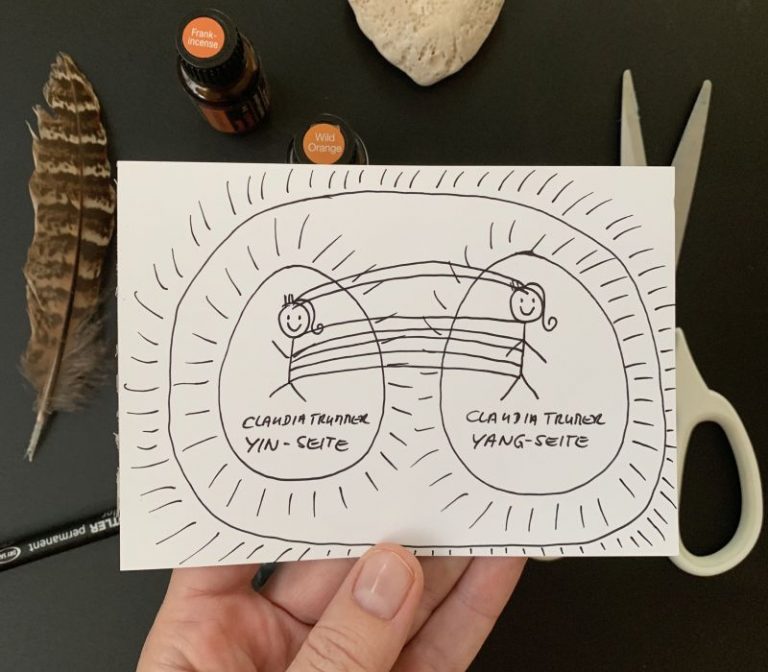 Frank-
incense
Wild
Orange
CLAUDIA TRUMMER
YIN-SEITE
CLAUDIA TRUMER
YANG-SEITE
TLER permanent